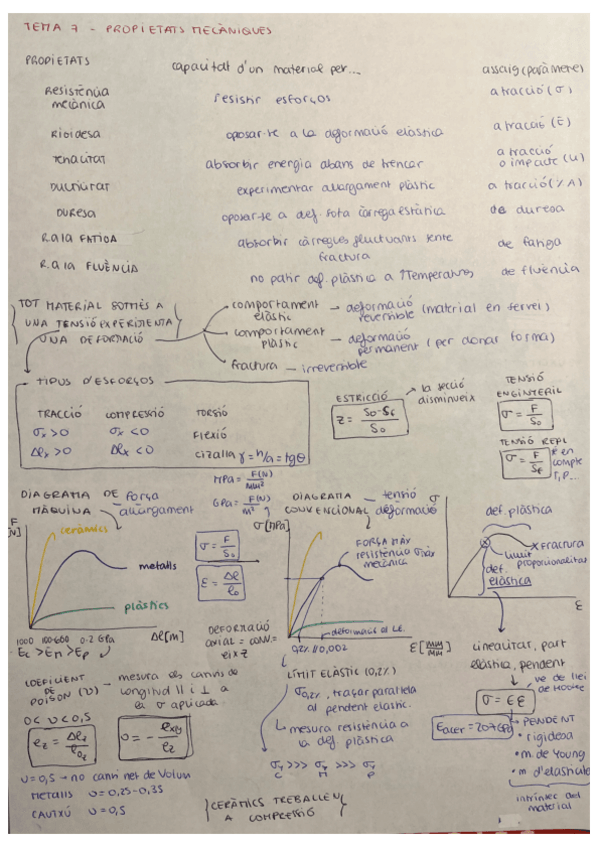 TEMA 7 - PROPIETATS MECÀNIQUES
PROPIETATS capacitat d'un material per... assaig (paràmetre)
Resistència mecànica resistir esforços a tracció (σ)
Rigidesa oposar-te a la deformació elàstica a tracció (E)
Tenacitat absorbir energia abans de trencar a tracció o impacte (U)
Ductilitat experimentar allargament plàstic a tracció (% A)
DURESA oposar-se a def. sota càrrega estàtica de duresa
R. a la FATIGA absorbir càrregues fluctuants sense fractura de fatiga
R. a la FLUÈNCIA no patir def. plàstica a ↑Temperatures de fluència
TOT MATERIAL SOTMÈS A
UNA TENSIÓ EXPERIMENTA
UNA DEFORMACIÓ
comportament elàstic - deformació reversible (material en servei)
comportament plàstic - deformació permanent (per donar forma)
fractura - irreversible
TIPUS D'ESFORÇOS
TRACCIÓ COMPRESSIÓ TORSIÓ
σx > 0 σx < 0 FLEXIÓ
Δlx > 0 Δlx < 0 cizalla γ = h/a = tgθ
ESTRICCIÓ → la secció disminueix
Z = So - Sf / So
TENSIÓ ENGINYERIL
σ = F / So
TENSIÓ REAL
σ = F / Sf
MPa = F(N) / mm²
GPa = F(N) / m²
DIAGRAMA DE MÀQUINA
força
allargament
F [N]
ceràmics
metalls
plàstics
Δl [m]
1000 100-600 0.2 GPa
Ec > Em > Ep
σ = F / So
ε = Δl / lo
DIAGRAMA CONVENCIONAL
tensió
deformació
σ [MPa]
FORÇA MÀX
resistència màx
mecànica
0,2% // 0,002
ε [mm/mm]
DEFORMACIÓ
axial = conv.
eix z
σ
def. plàstica
fractura
límit
proporcionalitat
def. elàstica
ε
COEFICIENT DE POISON (υ) - mesura els canvis de
longitud || i ⊥ a
la σ aplicada
0 < υ < 0,5
υ = 0,5 → no canvi net de volum
METALLS υ = 0,25 - 0,35
CAUTXÚ υ = 0,5
LÍMIT ELÀSTIC (0,2%)
σ0,2, traçar paral·lela
al pendent elàstic.
mesura resistència a
la def. plàstica
σy >>> σy >>> σy
C M P
CERÀMICS TREBALLEN
A COMPRESSIÓ
linealitat, part
elàstica, pendent
σ = Eε
ve de llei
de Hooke
Eacer = 207 GPa
PENDENT
• rigidesa
• m de Young
• m d'elasticitat
intrínsec del
material